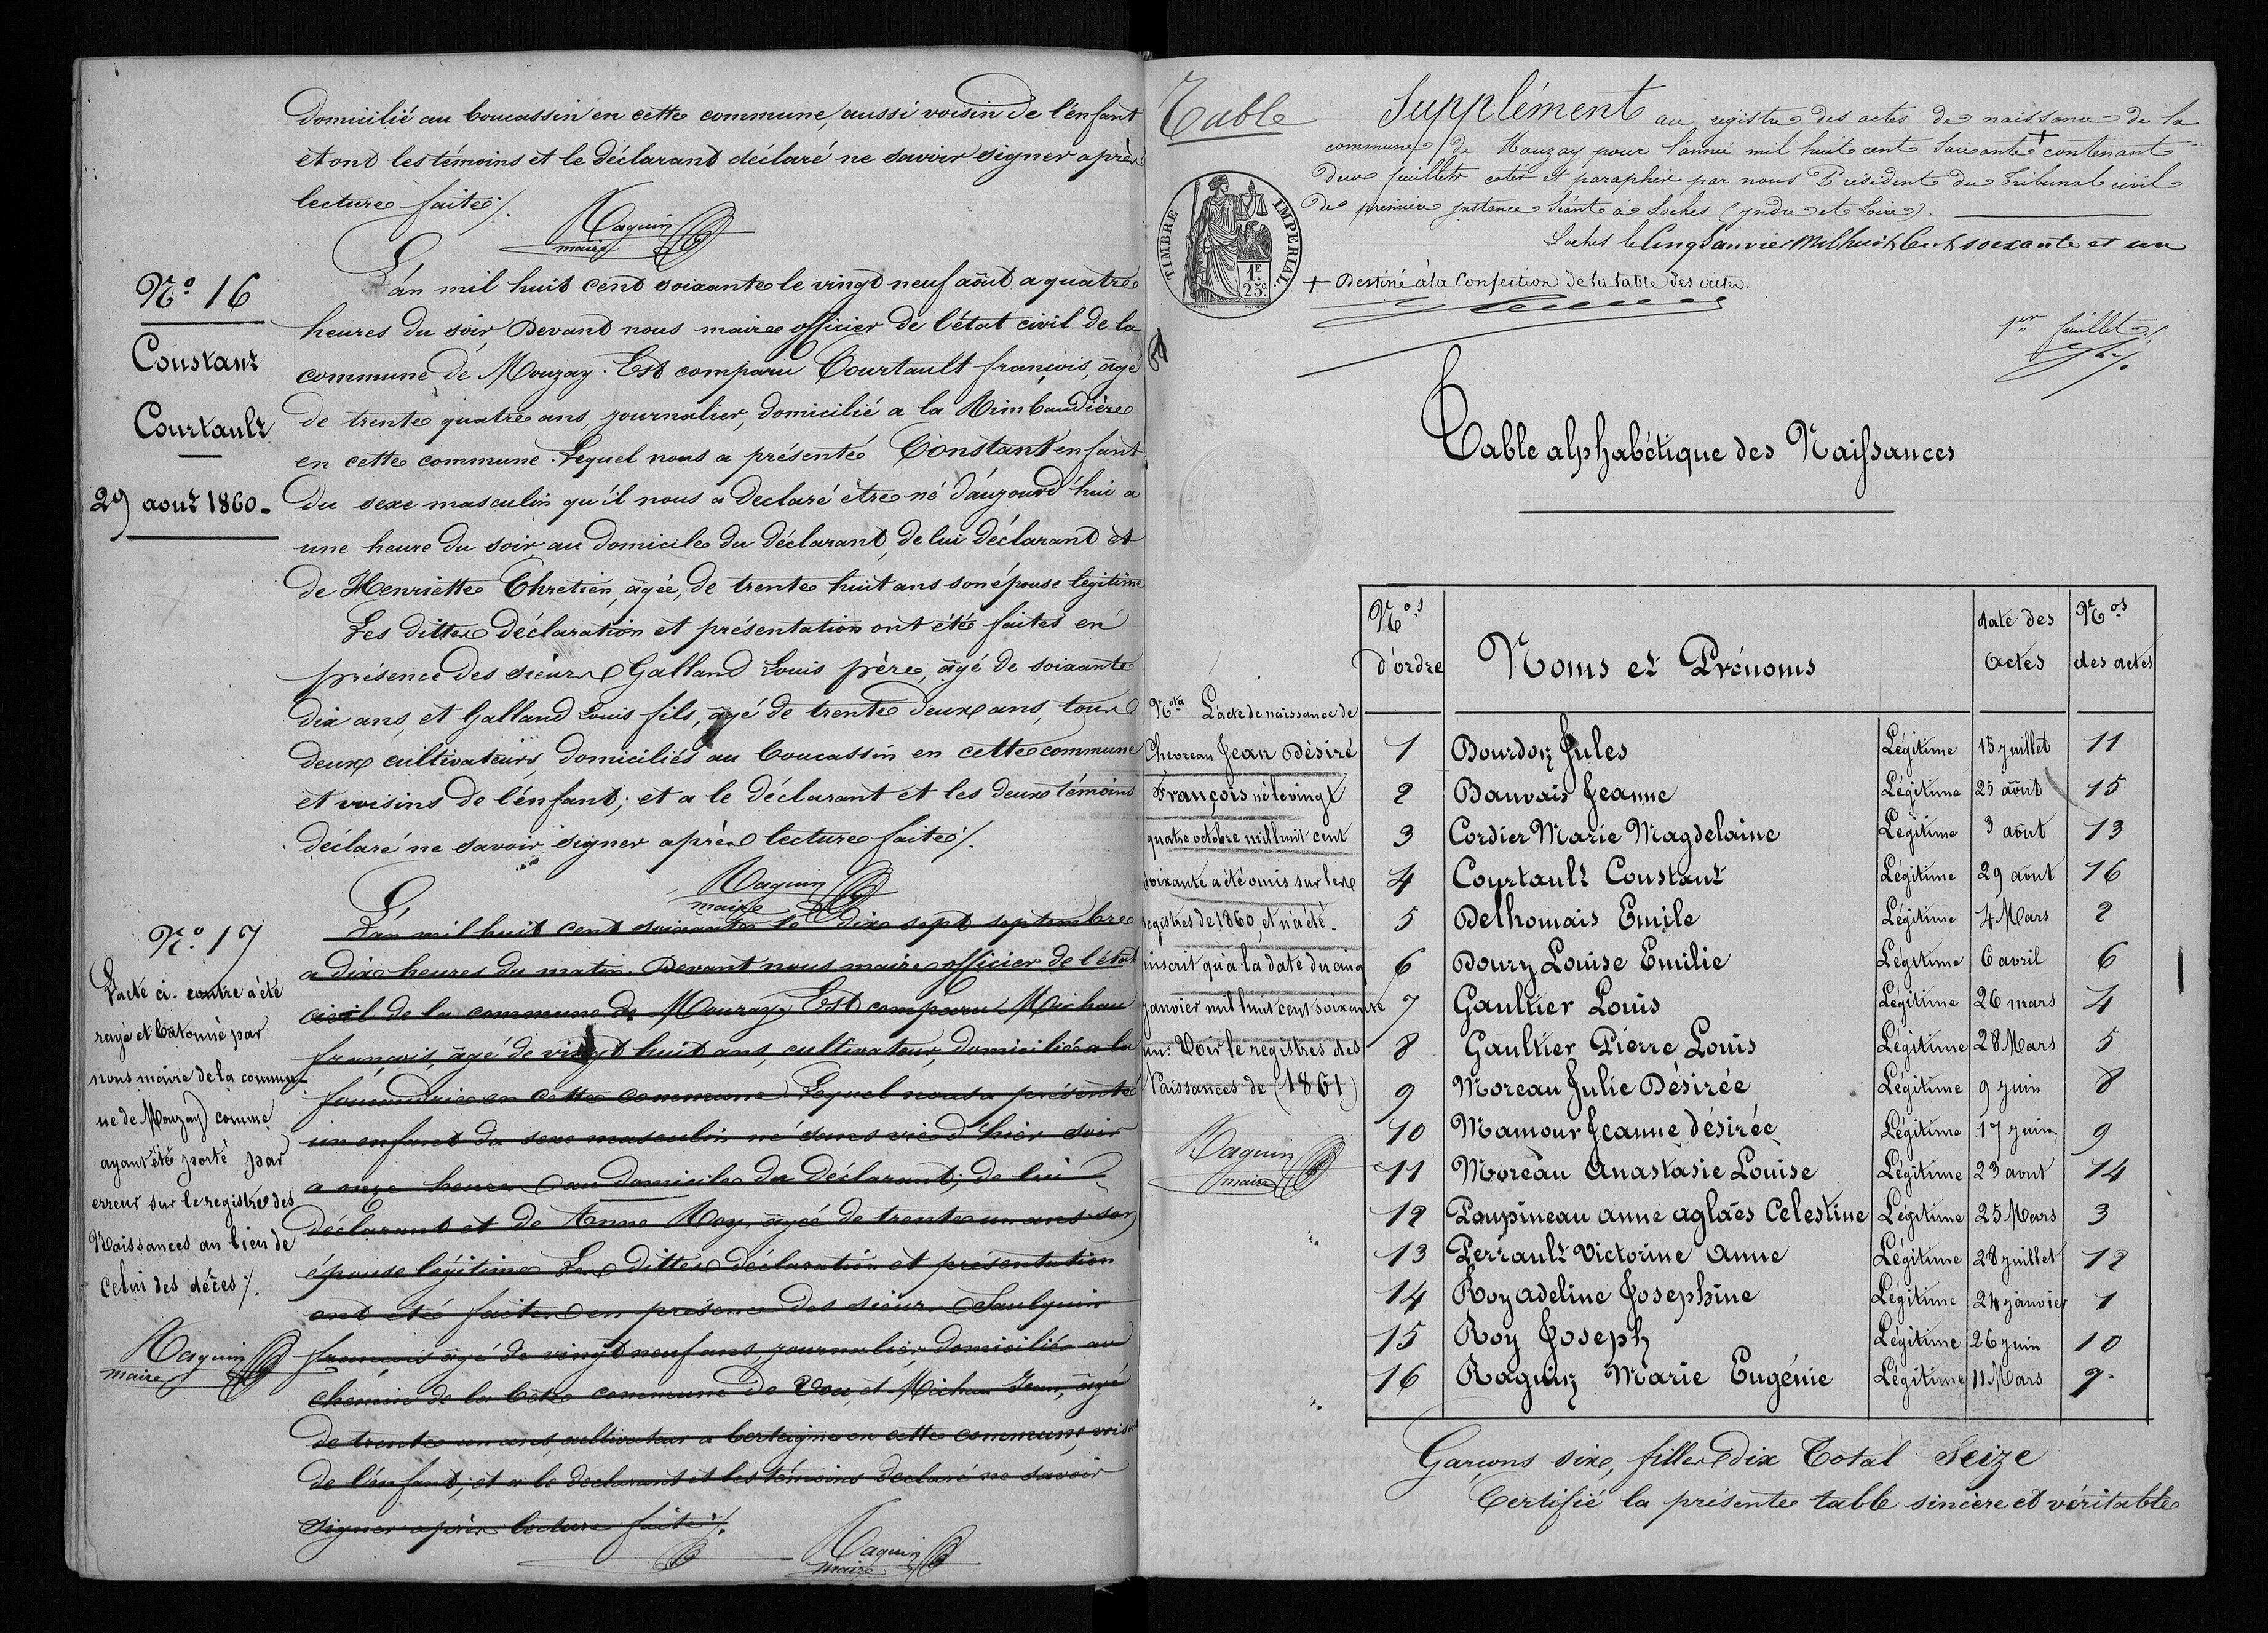 domicilié au Coucassin en cette commune, aussi voisin de l'énfant
et ont les témoins et le déclarant déclaré ne savoir signer après
lecture faite /.
Raguin
maire
N° 16
Constant
Courtault
29 aout 1860.
L'án mil huit cent soixante le vingt neuf aôut a quatre
heures du soir, Devant nous maire officier de l'état civil de la
commune de Mouzay. Est comparu Courtault françois, âgé
de trente quatre ans, journalier, domicilié a la Rimbaudière
en cette commune. Lequel nous a présenté Constant enfant
du sexe masculin qu'il nous a declaré être né d'aujourd'hui a
une heure du soir, au domicile du déclarant, de lui déclarant et
de Henriette Chretien, âgée, de trente huit ans son épouse legitime
Les dittes déclaration et présentation ont été faites en
présence des sieurs Galland Louis père, âgé de soixante
dix ans, et Galland Louis fils, âgé de trente deux ans, tous
deux cultivateurs, domiciliés au Coucassin en cette commune
et voisins de l'énfant; et a le déclarant et les deux témoins
déclaré ne savoir signer après lecture faite /.
Raguin
maire
N° 17
L'acte ci-contre a été
rayé et batonné par
nous maire de la commu-
ne de Mouzay comme
ayant été porté par
erreur sur le registre des
Naissances au lieu de
celui des décès /.
Raguin
maire
L'án mil huit cent soixante le dix sept septembre
a dix heures du matin. Devant nous maire officier de l'état
civil de la commune de Mouzay Est comparu Michau
françois, âgé de vingt huit ans, cultivateur, domicilié a la
en cette commune Lequel nous a présenté
un enfant du sexe masculin né sans vie d'hier soir
a onze heures au domicile du déclarant; de lui
déclarant et de Anne Roy, âgée de trente un ans son
épouse légitime Les dittes déclaration et présentation
ont été faites en présence des sieurs Saulquin
françois âgé de vingt neuf ans, journalier, domicilié au
chemin de la commune de Vou, et Michau Jean, âgé
de trente un ans, cultivateur a en cette commune, voisins
de l'énfant; et a le declarant et les témoins declaré ne savoir
signer après lecture faite /.
Raguin
maire
Table
Supplément au registre des actes de naissance de la
commune de Mouzay pour l'année mil huit cent soixante + contenant
deux feuillets cotés et paraphés par nous Président du Tribunal civil
de première Instance séant à Loches (Indre et Loire).
Loches le Cinq Janvier Mil huit Cent soixante et un
+ Destiné à la Confection de la table des actes.
TIMBRE IMPERIAL
1F.
25c.
1er feuillet /.
Table alphabétique des Naissances
Nos d'ordre
Noms et Prénoms
date des actes
Nos des actes
1 Bourdon Jules Légitime 15 juillet 11
2 Bauvais Jeanne Légitime 25 aôut 15
3 Cordier Marie Magdelaine Légitime 3 aôut 13
4 Courtault Constant Légitime 29 aôut 16
5 Delhomais Emile Légitime 4 Mars 2
6 Doury Louise Emilie Légitime 6 avril 6
7 Gaultier Louis Légitime 26 mars 4
8 Gaultier Pierre Louis Légitime 28 Mars 5
9 Moreau Julie Désirée Légitime 9 juin 8
10 Mamour Jeanne désirée Légitime 17 juin 9
11 Moreau Anastasie Louise Légitime 23 aout 14
12 Poupineau anne aglaës Celestine Légitime 25 Mars 3
13 Perrault Victorine Anne Légitime 28 juillet 12
14 Roy adeline Josephine Légitime 24 janvier 1
15 Roy Joseph Légitime 26 juin 10
16 Raguin Marie Eugénie Légitime 11 Mars
Nota L'acte de naissance de
Chevreau Jean Désiré
François né le vingt
quatre octobre mil huit cent
soixante a été omis sur les
registres de 1860, et n'a été
inscrit qu'à la date du cinq
janvier mil huit cent soixante
un. Voir le registres des
Naissances de (1861)
Raguin
maire
Garçons six, filles dix Total Seize
Certifié la présente table sincère et véritable